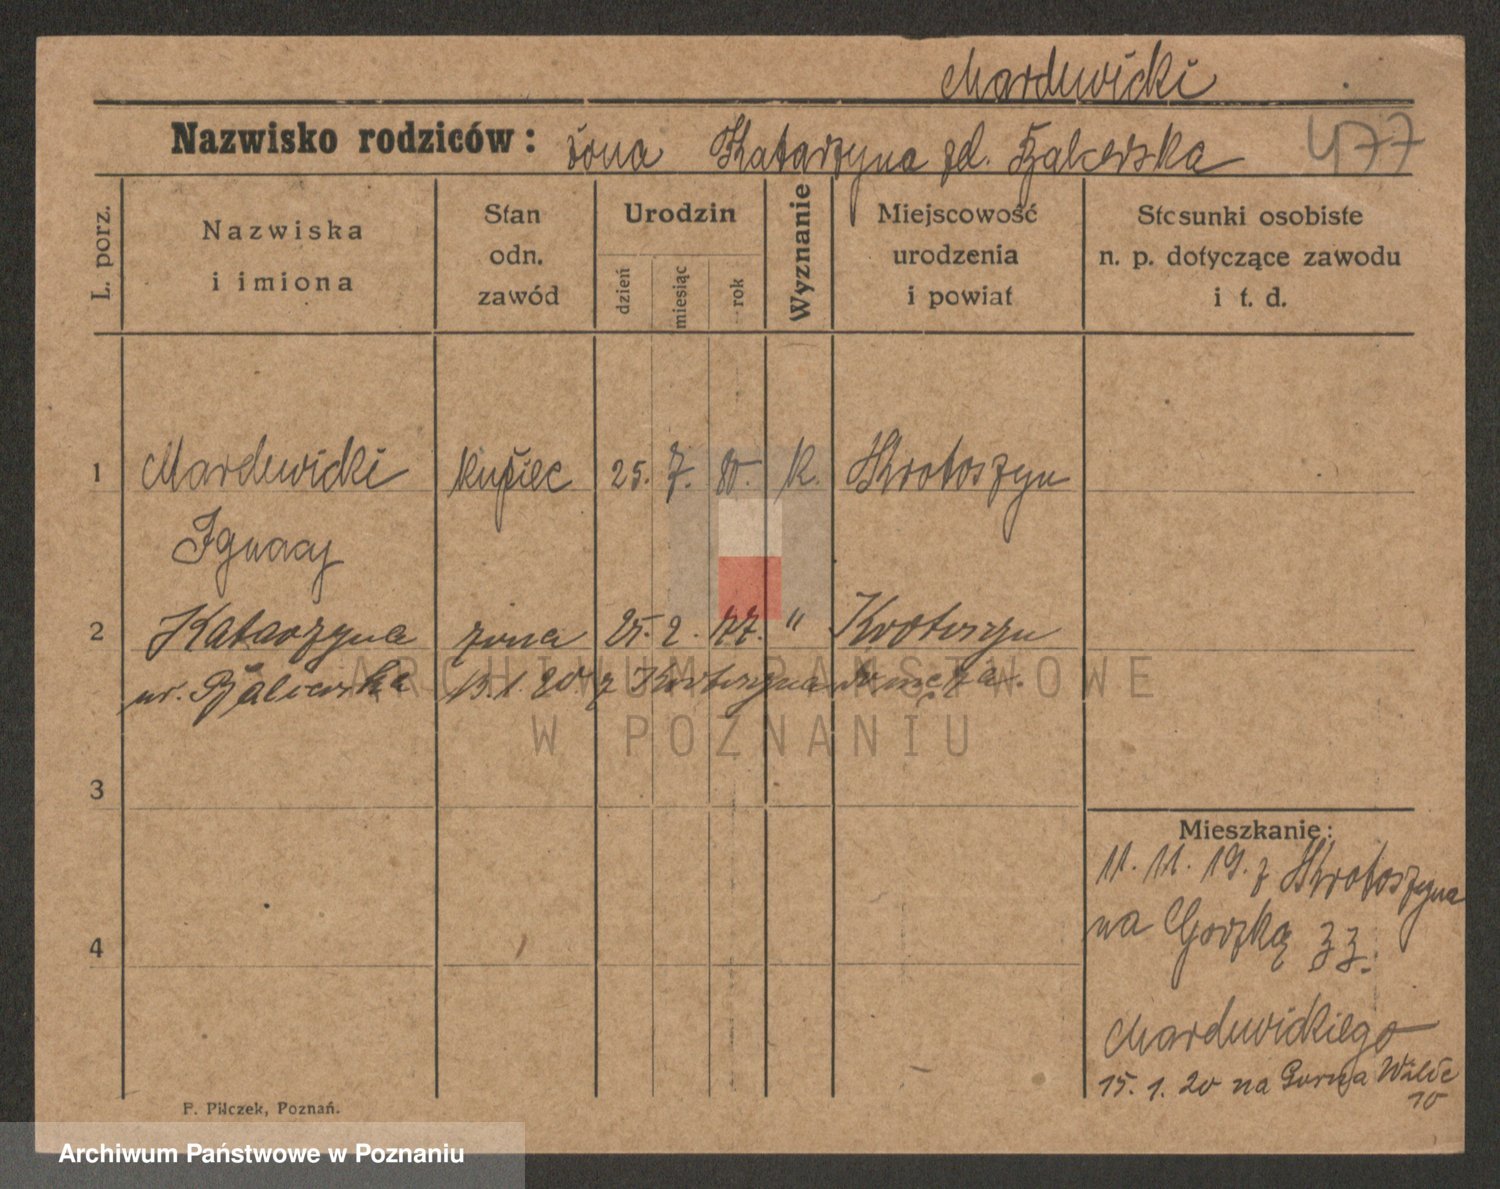 Mardewicki
Nazwisko rodziców: żona Katarzyna zd. 477
L. porz.
Nazwiska i imiona
Stan odn. zawód
Urodzin
dzień miesiąc rok
Wyznanie
Miejscowość urodzenia i powiat
Stosunki osobiste n. p. dotyczące zawodu i t. d.
1 Mardewicki kupiec 25. 7. 80. k. Krotoszyn
Ignacy
2 Katarzyna żona 25. 2. 77. " Krotoszyn
ur. 13. 1. 20 z Krotoszyna do męża.
3
4
Mieszkanie:
11. 11. 19. z Krotoszyna
na 33.
Mardewickiego
15. 1. 20 na Górna Wilde
10
F. Pilczek, Poznań.
ARCHIWUM PAŃSTWOWE
W POZNANIU
Archiwum Państwowe w Poznaniu